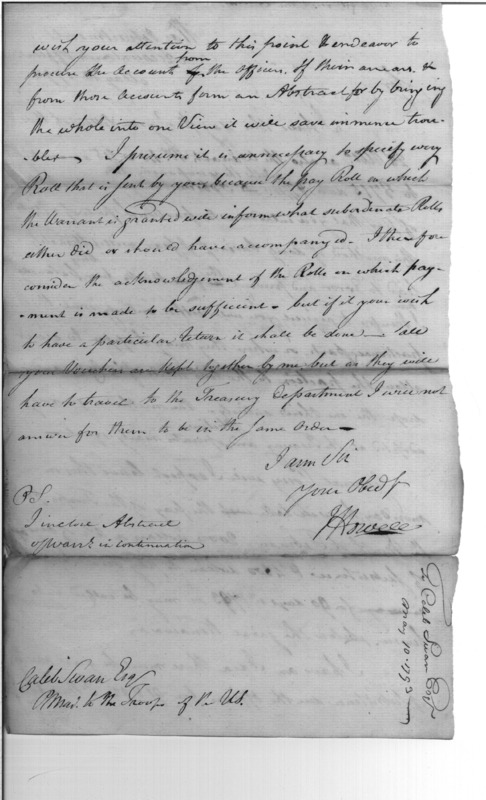 wish your attention to this point & endeavor to
procure the Accounts from the Officers. Of their arrears &
from those Accounts form an Abstract for by bringing
the whole into one View it will save immence trou-
-bles — I presume it is unnecessary to specify every
Roll that is sent by you, because the pay Roll on which
the Warrant is granted will inform what subordinate Rolls
either did or should have accompanyed. I therefore
consider the acknowledgement of the Rolls on which pay-
-ment is made to be sufficient - but if it your wish
to have a particular return it shall be done — all
your Vouchers are kept together by me but as they will
have to travel to the Treasury Department I will not
answer for them to be in the same Order —
I am Sir
Your Obedt
J Howell
P.S.
I inclose Abstract
of Wart. in continuation
Caleb Swan Esqr
PMas. to the Troops of the US.
To Caleb Swan Esqr
May 10. 1793